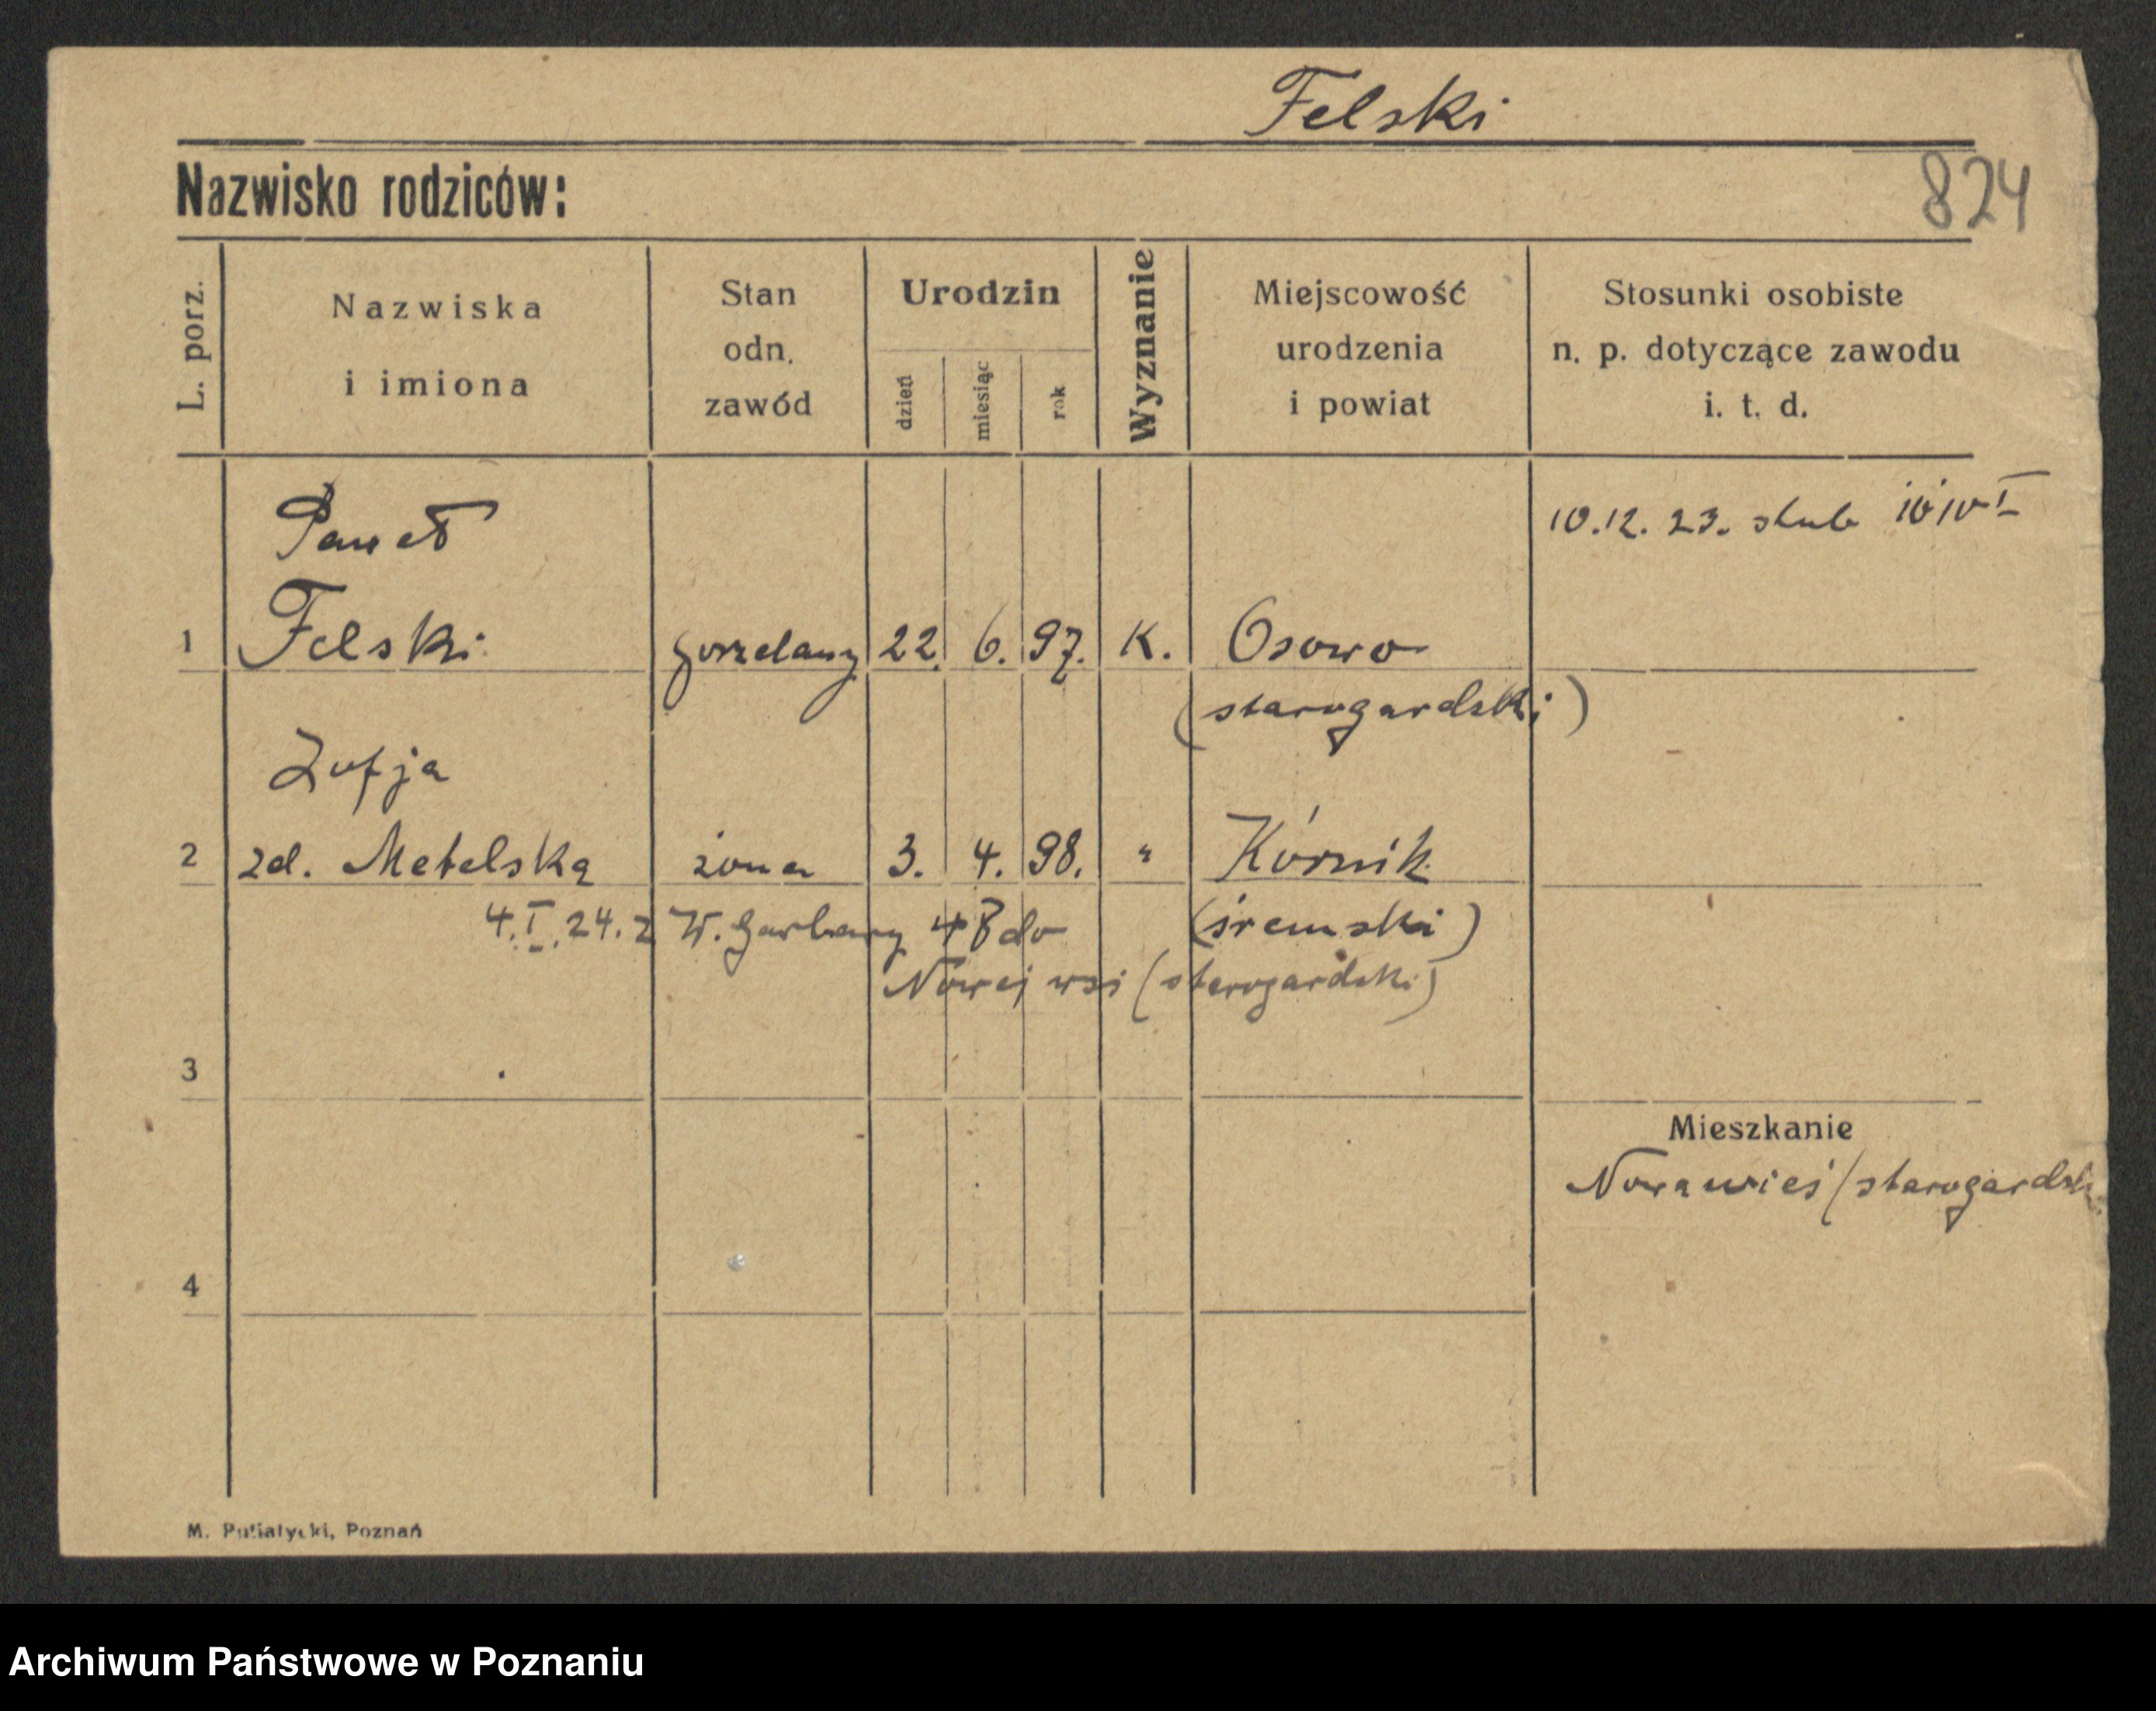 Felski
Nazwisko rodziców:
824
L. porz.
Nazwiska
i imiona
Stan
odn.
zawód
Urodzin
dzień
miesiąc
rok
Wyznanie
Miejscowość
urodzenia
i powiat
Stosunki osobiste
n. p. dotyczące zawodu
i. t. d.
Paweł
10.12.23. slub
1 Felski gorzelany 22. 6. 97. K. Osowo
(starogardski)
Zofja
2 zd. Metelska żona 3. 4. 98. " Kórnik
4.I.24. z W. Garbary 48 do (śremski)
Nowej wsi (starogardski)
3
Mieszkanie
Nowawieś (starogardski
4
M. Putiatycki, Poznań
Archiwum Państwowe w Poznaniu